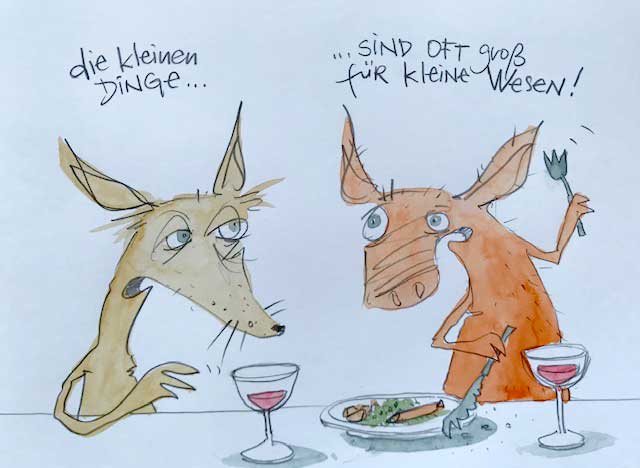 die kleinen
DINGE...
...SIND OFT groß
für kleine Wesen!